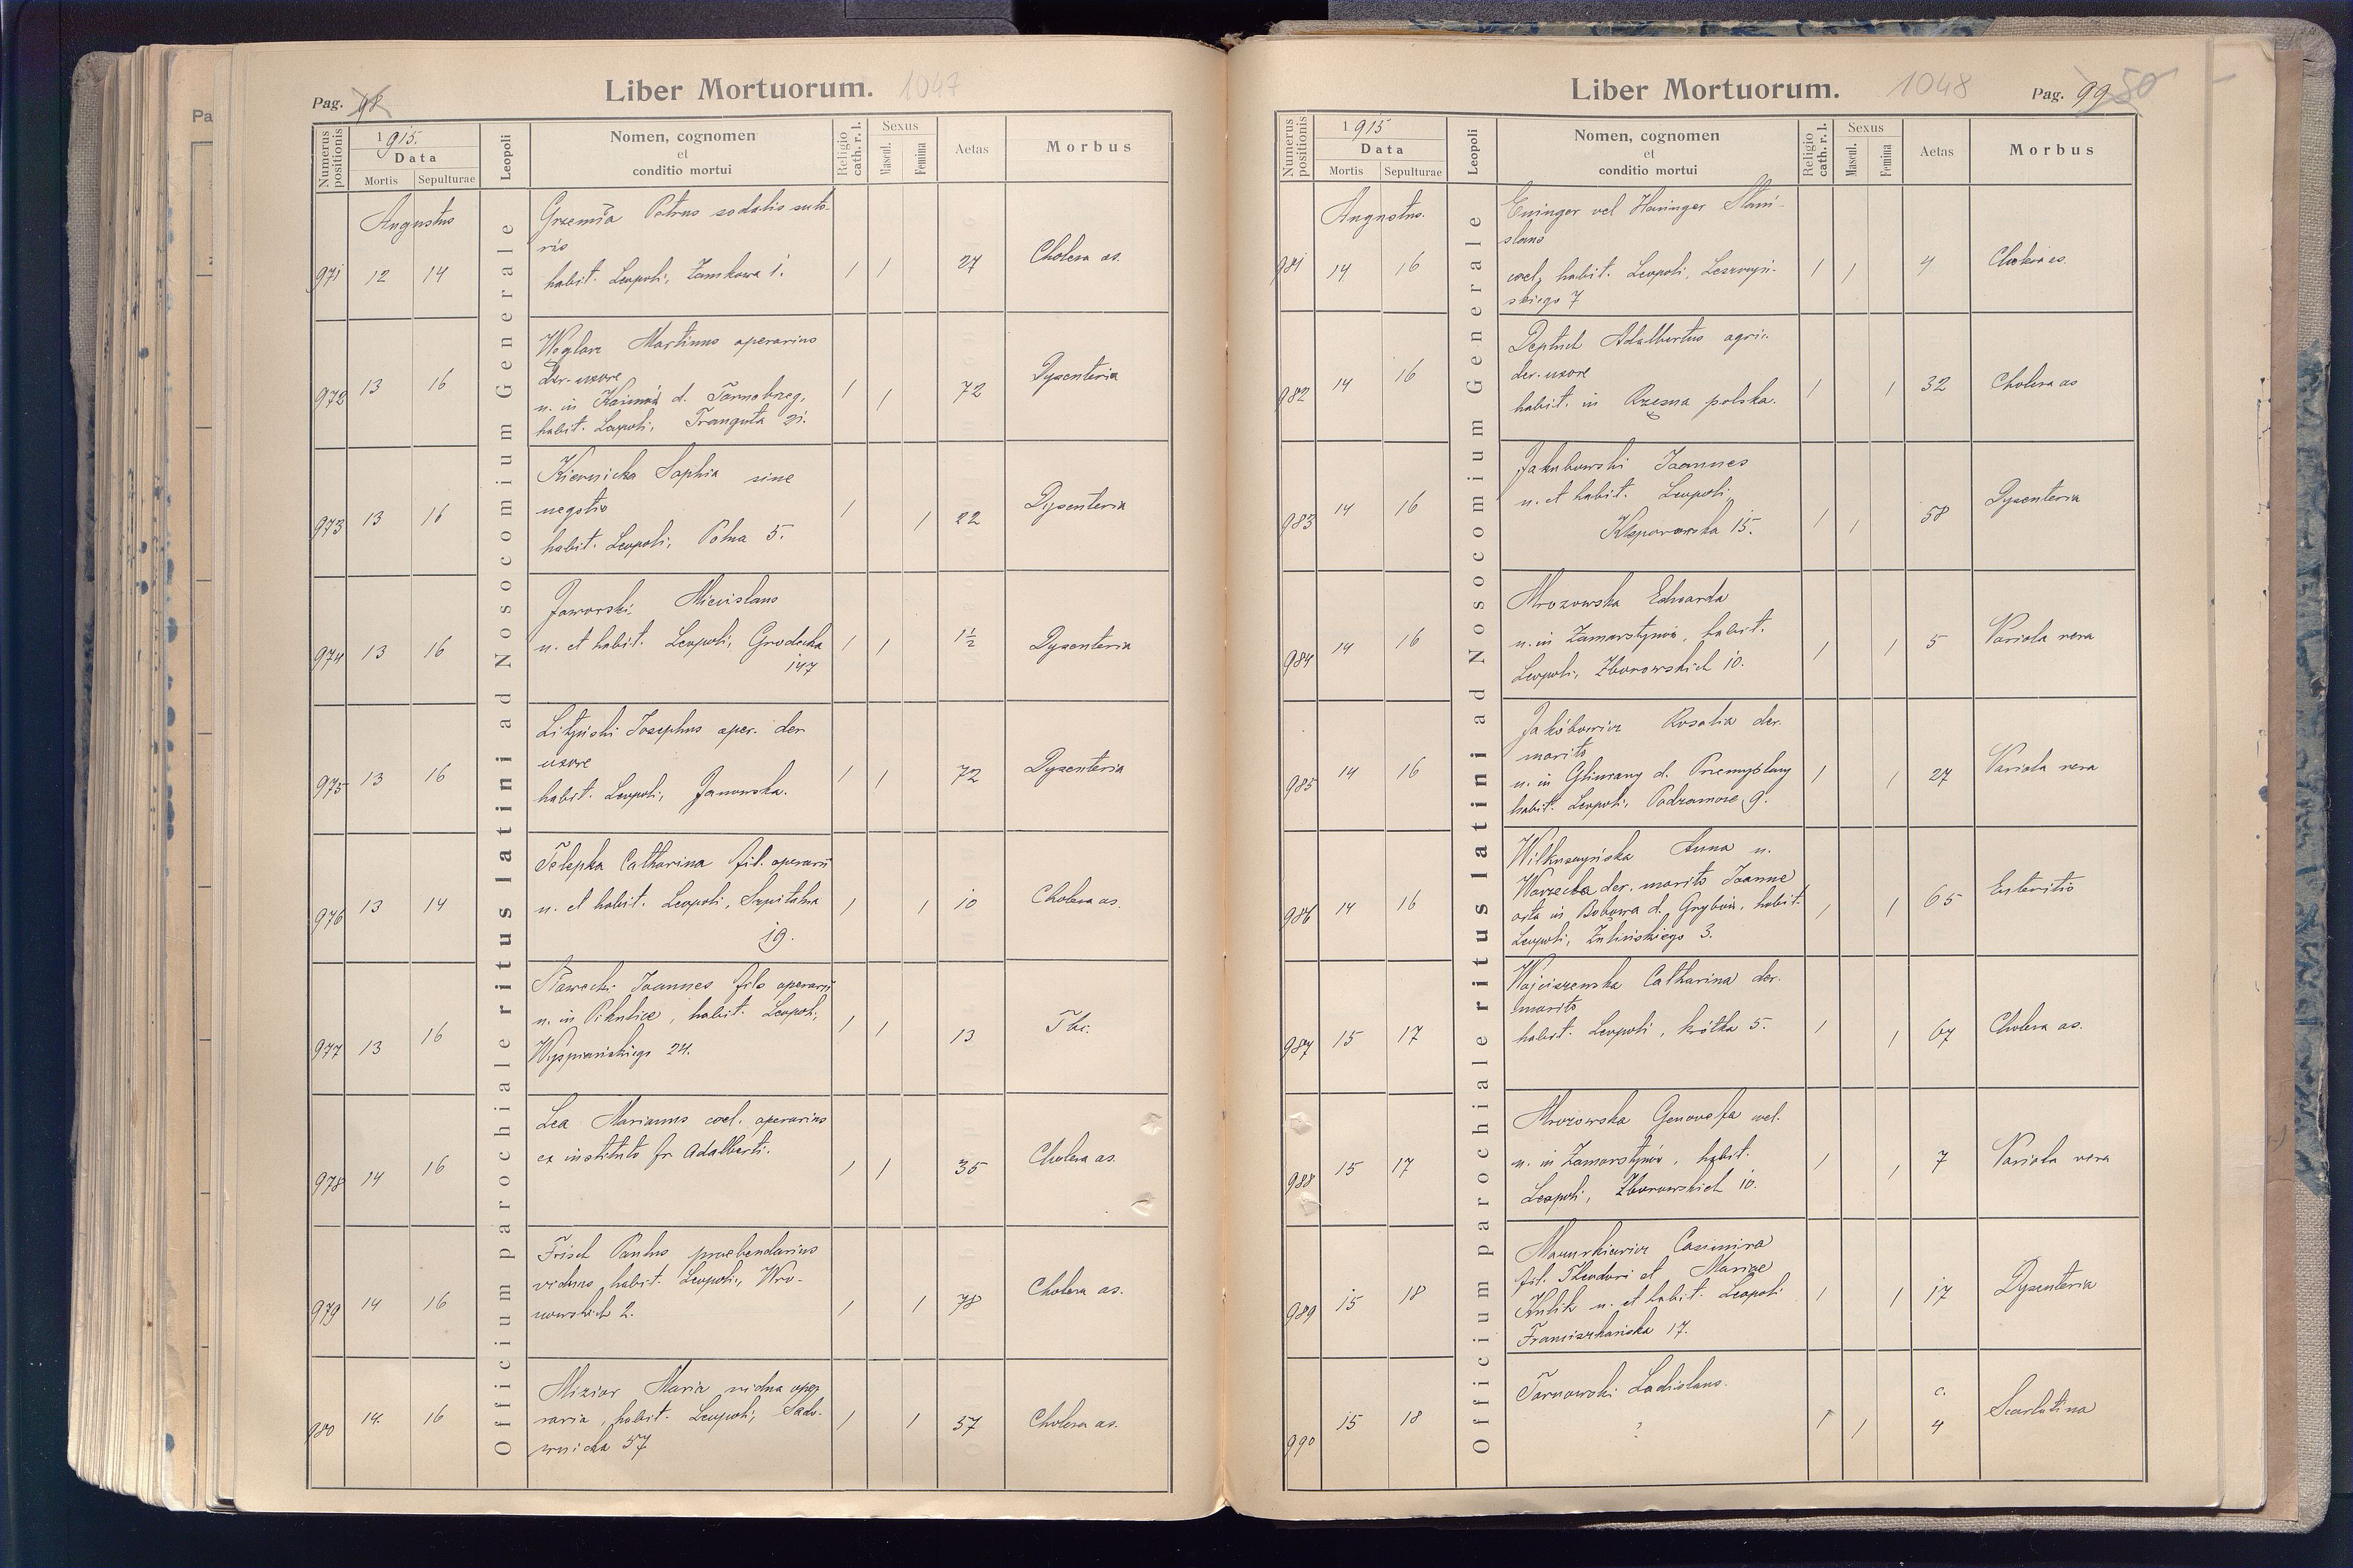 Liber Mortuorum. 1047
Pag. 98
Numerus positionis
1915.
Data
Mortis
Sepulturae
Leopoli
Nomen, cognomen
et
conditio mortui
Religio cath. r. l.
Sexus
Mascul.
Femina
Aetas
Morbus
Officium parochiale ritus latini ad Nosocomium Generale
Augustus
Petrus sodalis suto-
ris
971 12 14 habit. Leopoli, Zamkowa 1. / / 27 Cholera as.
Martinus operarius
der. uxore
972 13 16 n. in d. Tarnobrzeg, / / 72 Dysenteria
habit. Leopoli, Trauguta 21.
Kiernicka Sophia sine
negotio
973 13 16 habit. Leopoli, Polna 5. / / 22 Dysenteria
Jaworski Miecislaus
974 13 16 n. et habit. Leopoli, Grodecka / / 1½ Dysenteria
147
Josephus oper. der.
uxore
975 13 16 habit. Leopoli, Janowska. / / 72 Dysenteria
Telepka Catharina fil. operarii
976 13 14 n. et habit. Leopoli, Szpitalna / / 10 Cholera as.
19.
Joannes fils operarii
n. in Pikulice, habit. Leopoli,
977 13 16 Wyspiańskiego 24. / / 13 Tbc.
Lea Marianus coel. operarius
ex instituto fr. Adalberti.
978 14 16 / / 35 Cholera as.
Frisch Paulus praebendarius
viduus, habit. Leopoli, Wro-
979 14 16 nowskich 2. / / 78 Cholera as.
Mizior Maria vidua ope-
raria, habit. Leopoli, Sado-
980 14. 16 wnicka 57 / / 37 Cholera as.
Liber Mortuorum. 1048
Pag. 99 50
Numerus positionis
1915
Data
Mortis
Sepulturae
Leopoli
Nomen, cognomen
et
conditio mortui
Religio cath. r. l.
Sexus
Mascul.
Femina
Aetas
Morbus
Officium parochiale ritus latini ad Nosocomium Generale
Augustus.
Eninger vel Haninger Stani-
slaus
981 14 16 coel, habit. Leopoli, / / 4 Cholera as.
skiego 7
Deptuch Adalbertus agric.
der. uxore
982 14 16 habit. in Rzęsna polska. / / 32 Cholera as
Jakubowski Joannes
n. et habit. Leopoli
983 14 16 Kleparowska 15. / / 58 Dysenteria
Mrozowska Eduarda
n. in Zamarstynów, habit.
984 14 16 Leopoli, Zborowskich 10. / / 5 Variola vera
Jakóbowicz Rosalia der.
marito
n. in Gliniany d. Przemyślany
985 14 16 habit. Leopoli, Podzamcze 9. / / 27 Variola vera
Wilkuszyńska Anna n.
Warzecha der. marito Joanne
orta in Bobowa d. Grybów, habit.
986 14 16 Leopoli, Zulińskiego 3. / / 65 Enteritis
Wojciszewska Catharina der.
marito
987 15 17 habit. Leopoli, krótka 5. / / 67 Cholera as.
Mrozowska Genovefa coel.
n. in Zamarstynów, habit.
988 15 17 Leopoli, Zborowskich 10. / / 7 Variola vera
Mazurkiewicz Casimira
fil. Theodori et Mariae
Kulik n. et habit. Leopoli
989 15 18 Franciszkańska 17. / / 17 Dysenteria
Tarnowski Ladislaus.
990 15 18 ? / / c. 4 Scarlatina